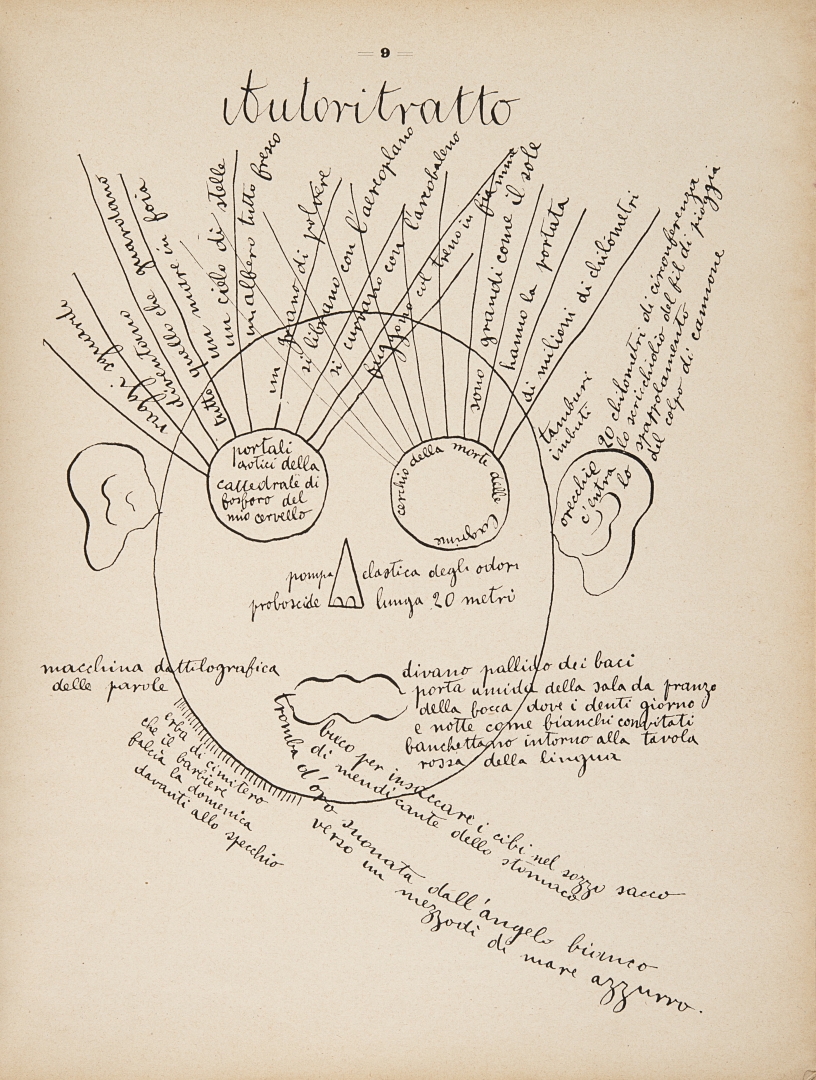 9
Autoritratto
raggi sguardi
diventano
tutto quello che guardano
un cuore in foia
un cielo di stelle
un albero tutto fresco
un grano di polvere
si librano con l'aereoplano
si curvano con l'arcobaleno
fuggono col treno in fiamme
sono grandi come il sole
hanno la portata
di milioni di chilometri
tamburi
imbuti
20 chilometri di circonferenza
lo scricchiolio del fil di pioggia
spappolamento
del colpo di cannone
portali
gotici della
cattedrale di
fosforo del
mio cervello
cerchio della morte delle lagrime
orecchio
c'entra
lo
pompa elastica degli odori
proboscide lunga 20 metri
macchina dattilografica
delle parole
divano pallido dei baci
porta umida della sala da pranzo
della bocca dove i denti giorno
e notte come bianchi convitati
banchettano intorno alla tavola
rossa della lingua
buco per insaccare i cibi nel sozzo sacco
di mendicante dello stomaco
tromba d'oro suonata dall'angelo bianco
verso un mezzodì di mare azzurro.
erba di cimitero
che il barbiere
falcia la domenica
davanti allo specchio